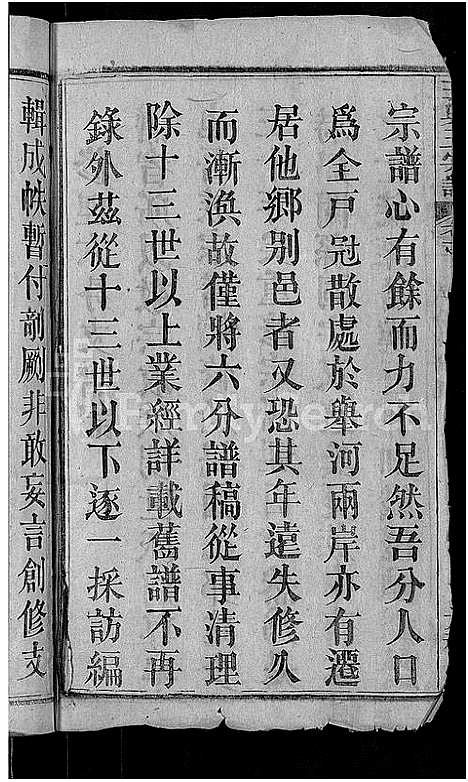 宗譜心有餘而力不足然吾分人口
爲全戸冠散處於舉河兩岸亦有遷
居他鄉别邑者又恐其年遠失修久
而漸渙故僅將六分譜稿從事清理
除十三世以上業經詳載舊譜不再
錄外茲從十三世以下逐一採訪編
輯成帙暫付剞劂非敢妄言創修支